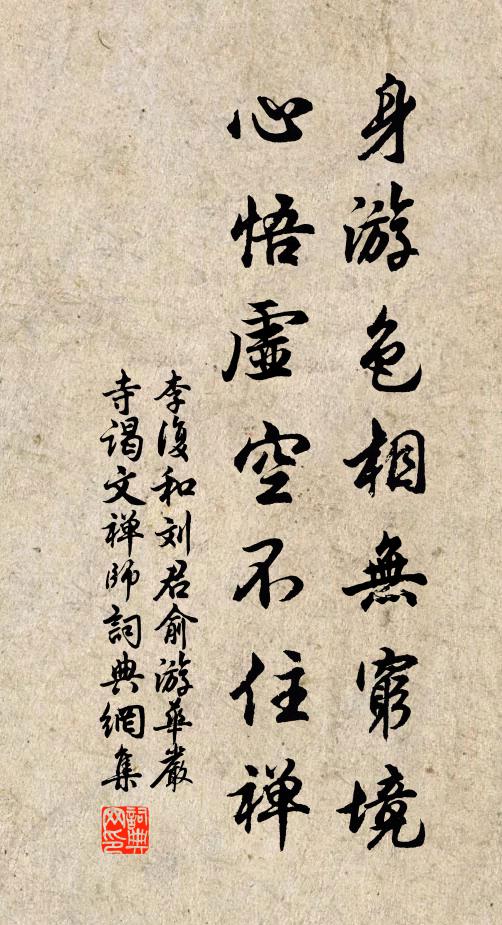 身游色相無窮境
心悟虛空不住禅
李復和刘君俞游華嚴
寺谒文禅师詞典網集
詞典网印